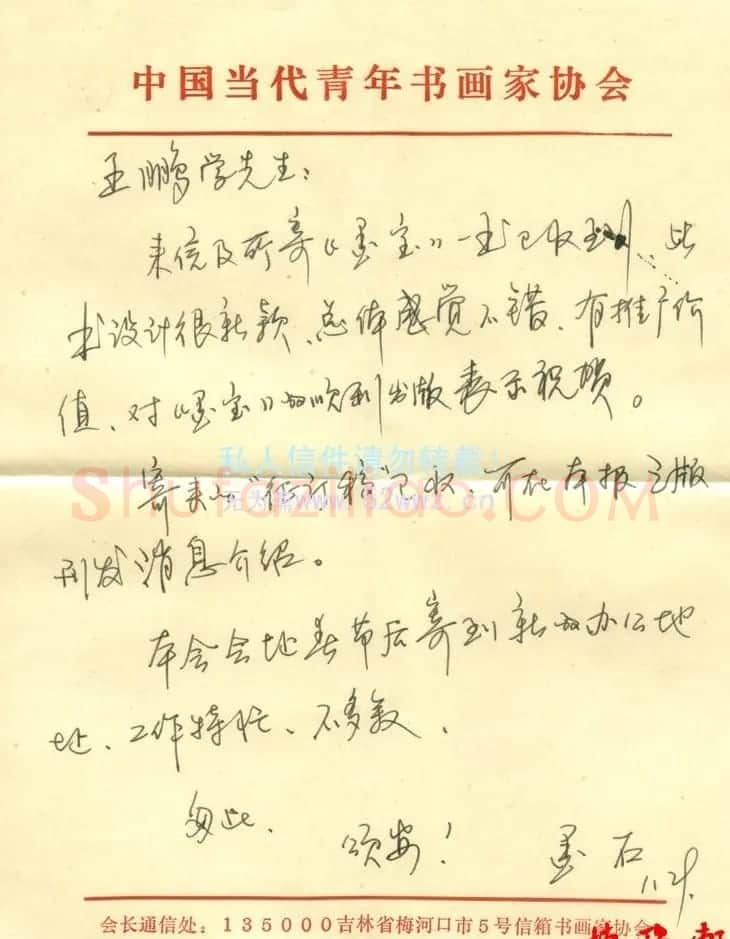 中国当代青年书画家协会
王鹏学先生：
来信及所寄《墨宝》一书已收到、此
书设计很新颖、总体感觉不错、有推广价
值、对《墨宝》的顺利出版表示祝贺。
私人信件请勿转载！
寄来之“征订稿”已收、可在本报三版
Shufaziliao.com
刊发消息介绍。
本会会址春节后寄到新的办公地
址、工作特忙、不多叙、
匆此、
颂安！
墨石
会长通信处：135000吉林省梅河口市5号信箱书画家协会